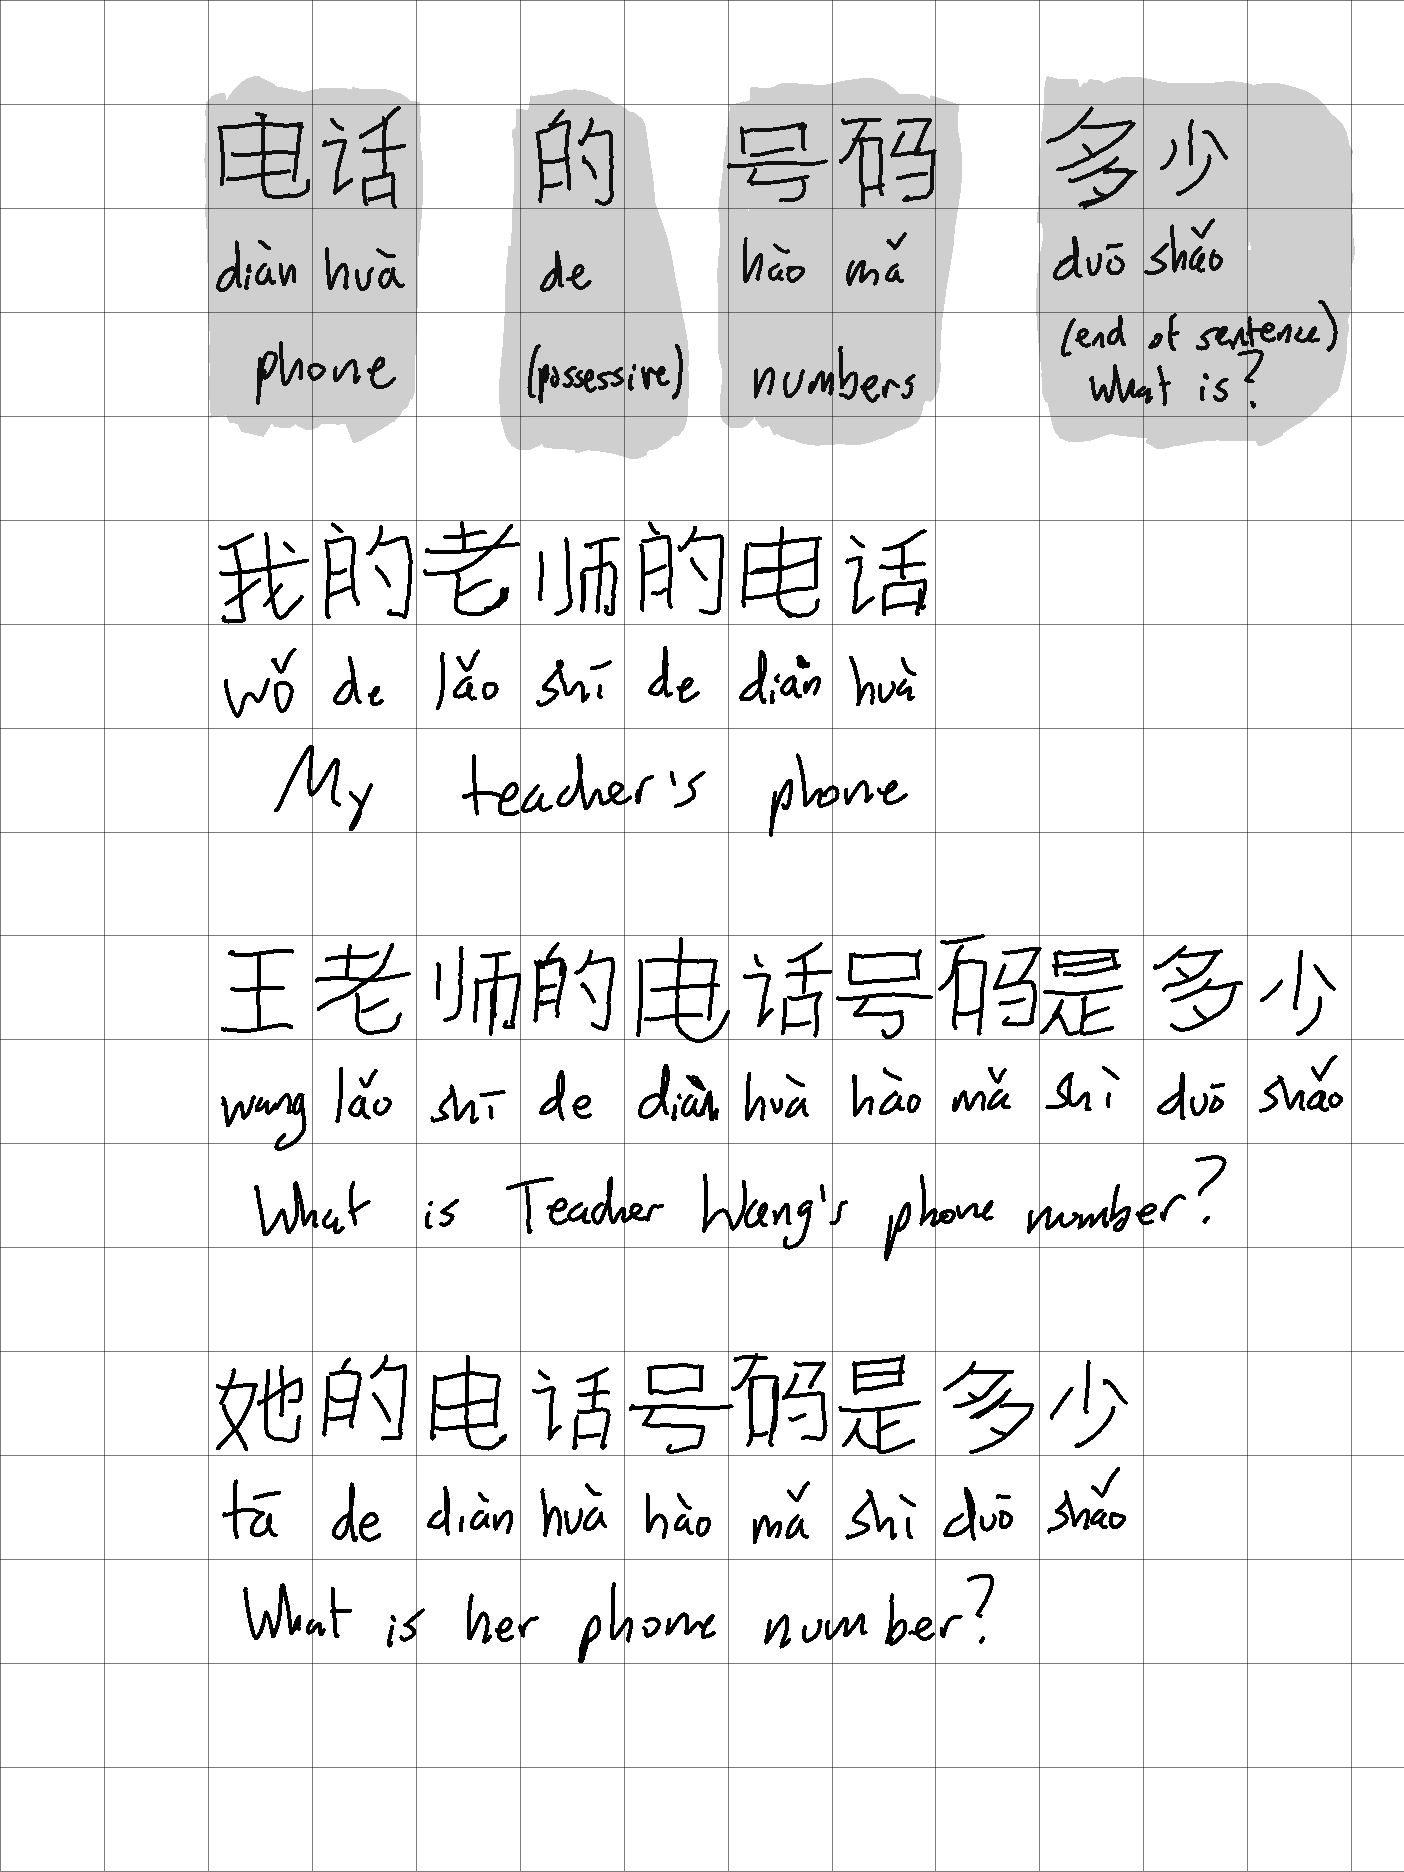 电话 的 号码 多少
diàn huà de hào mǎ duō shǎo
phone (possessive) numbers (end of sentence) what is?
我的老师的电话
wǒ de lǎo shī de diàn huà
My teacher's phone
王老师的电话号码是多少
wang lǎo shī de diàn huà hào mǎ shì duō shǎo
What is Teacher Wang's phone number?
她的电话号码是多少
tā de diàn huà hào mǎ shì duō shǎo
What is her phone number?